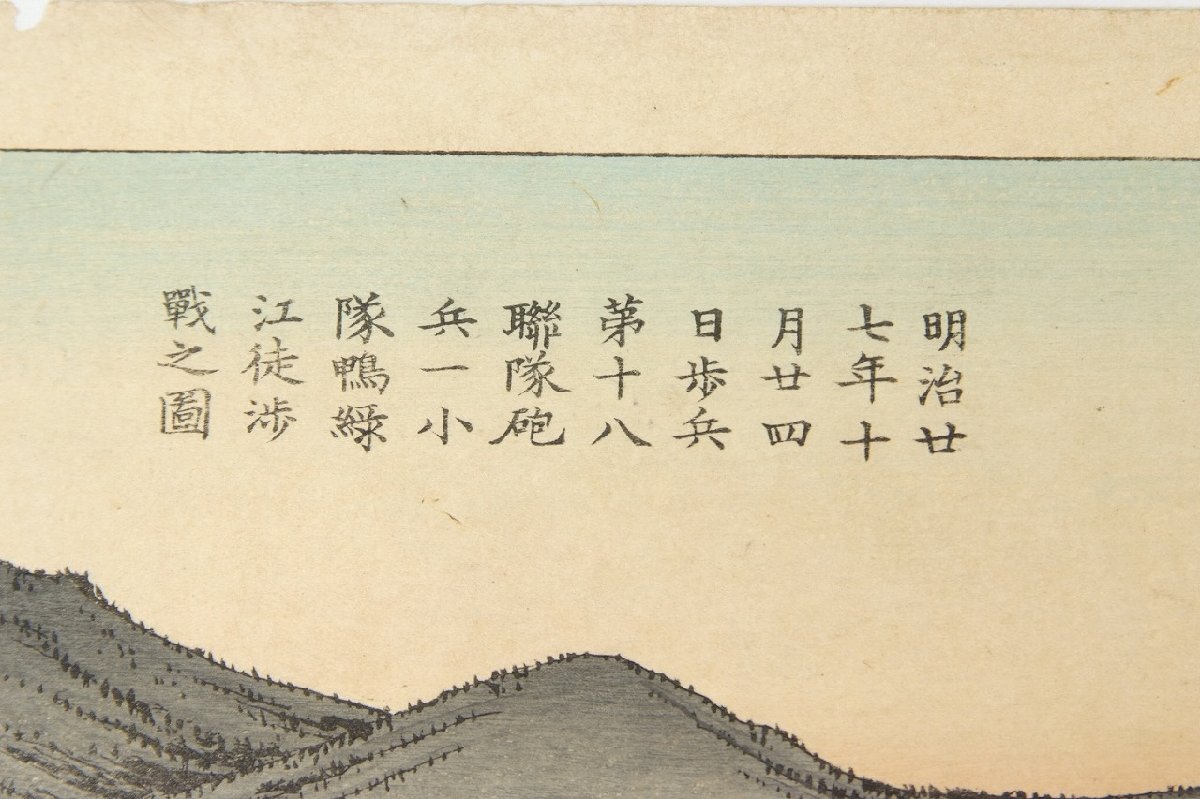 明治廿
七年十
月廿四
日歩兵
第十八
聯隊砲
兵一小
隊鴨緑
江徒渉
戰之圖